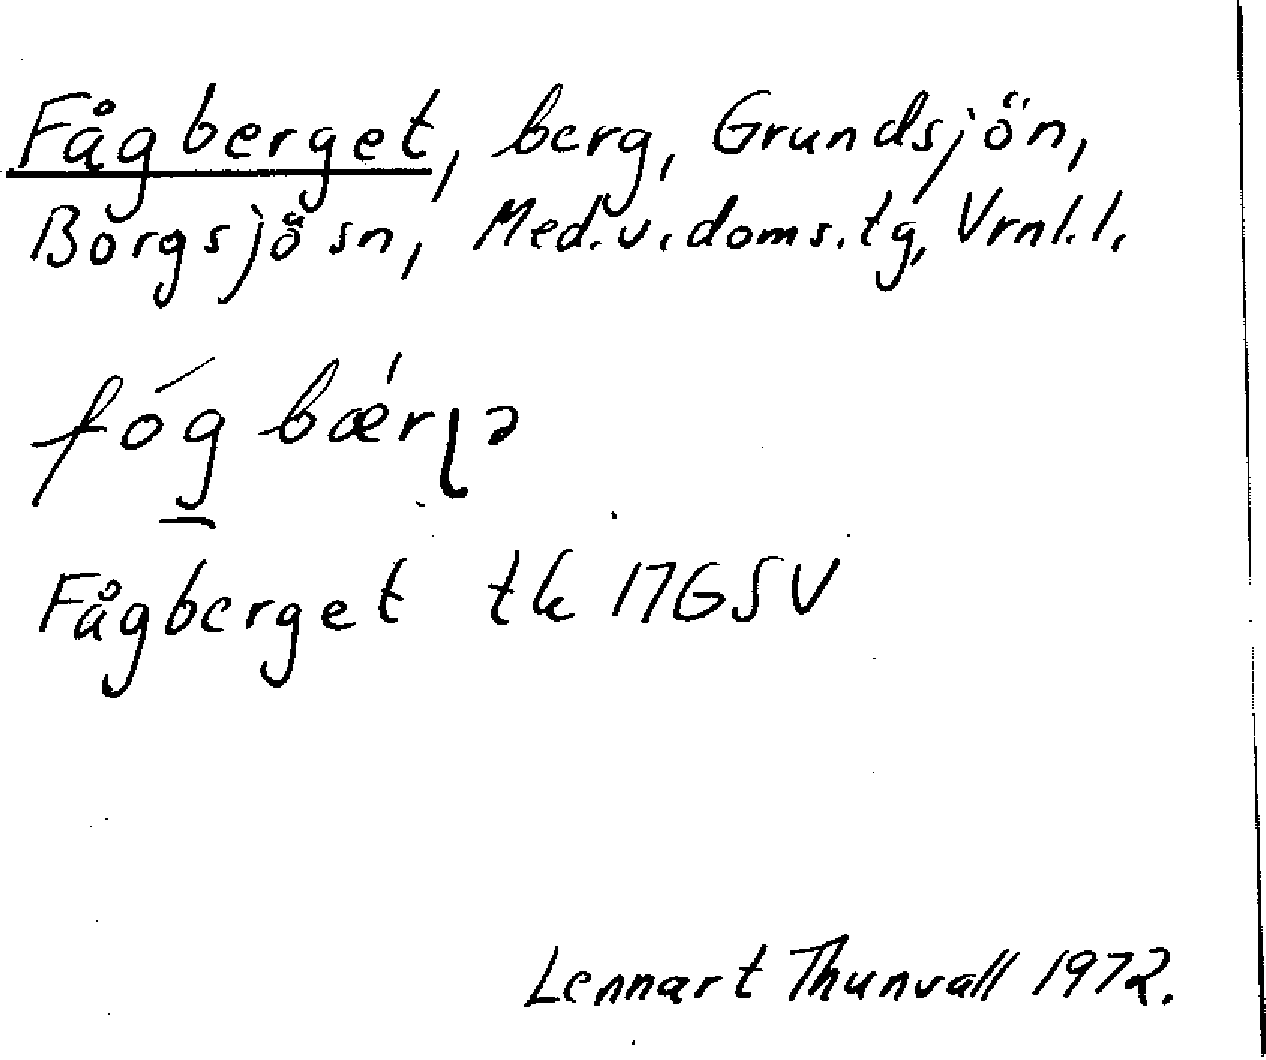 Fågberget, berg, Grundsjön,
Borgsjö sn, Med.v.doms.tg, Vrnl.l.
fóg bǽrɩə
Fågberget tk 17G SV
Lennart Thunvall 1972.